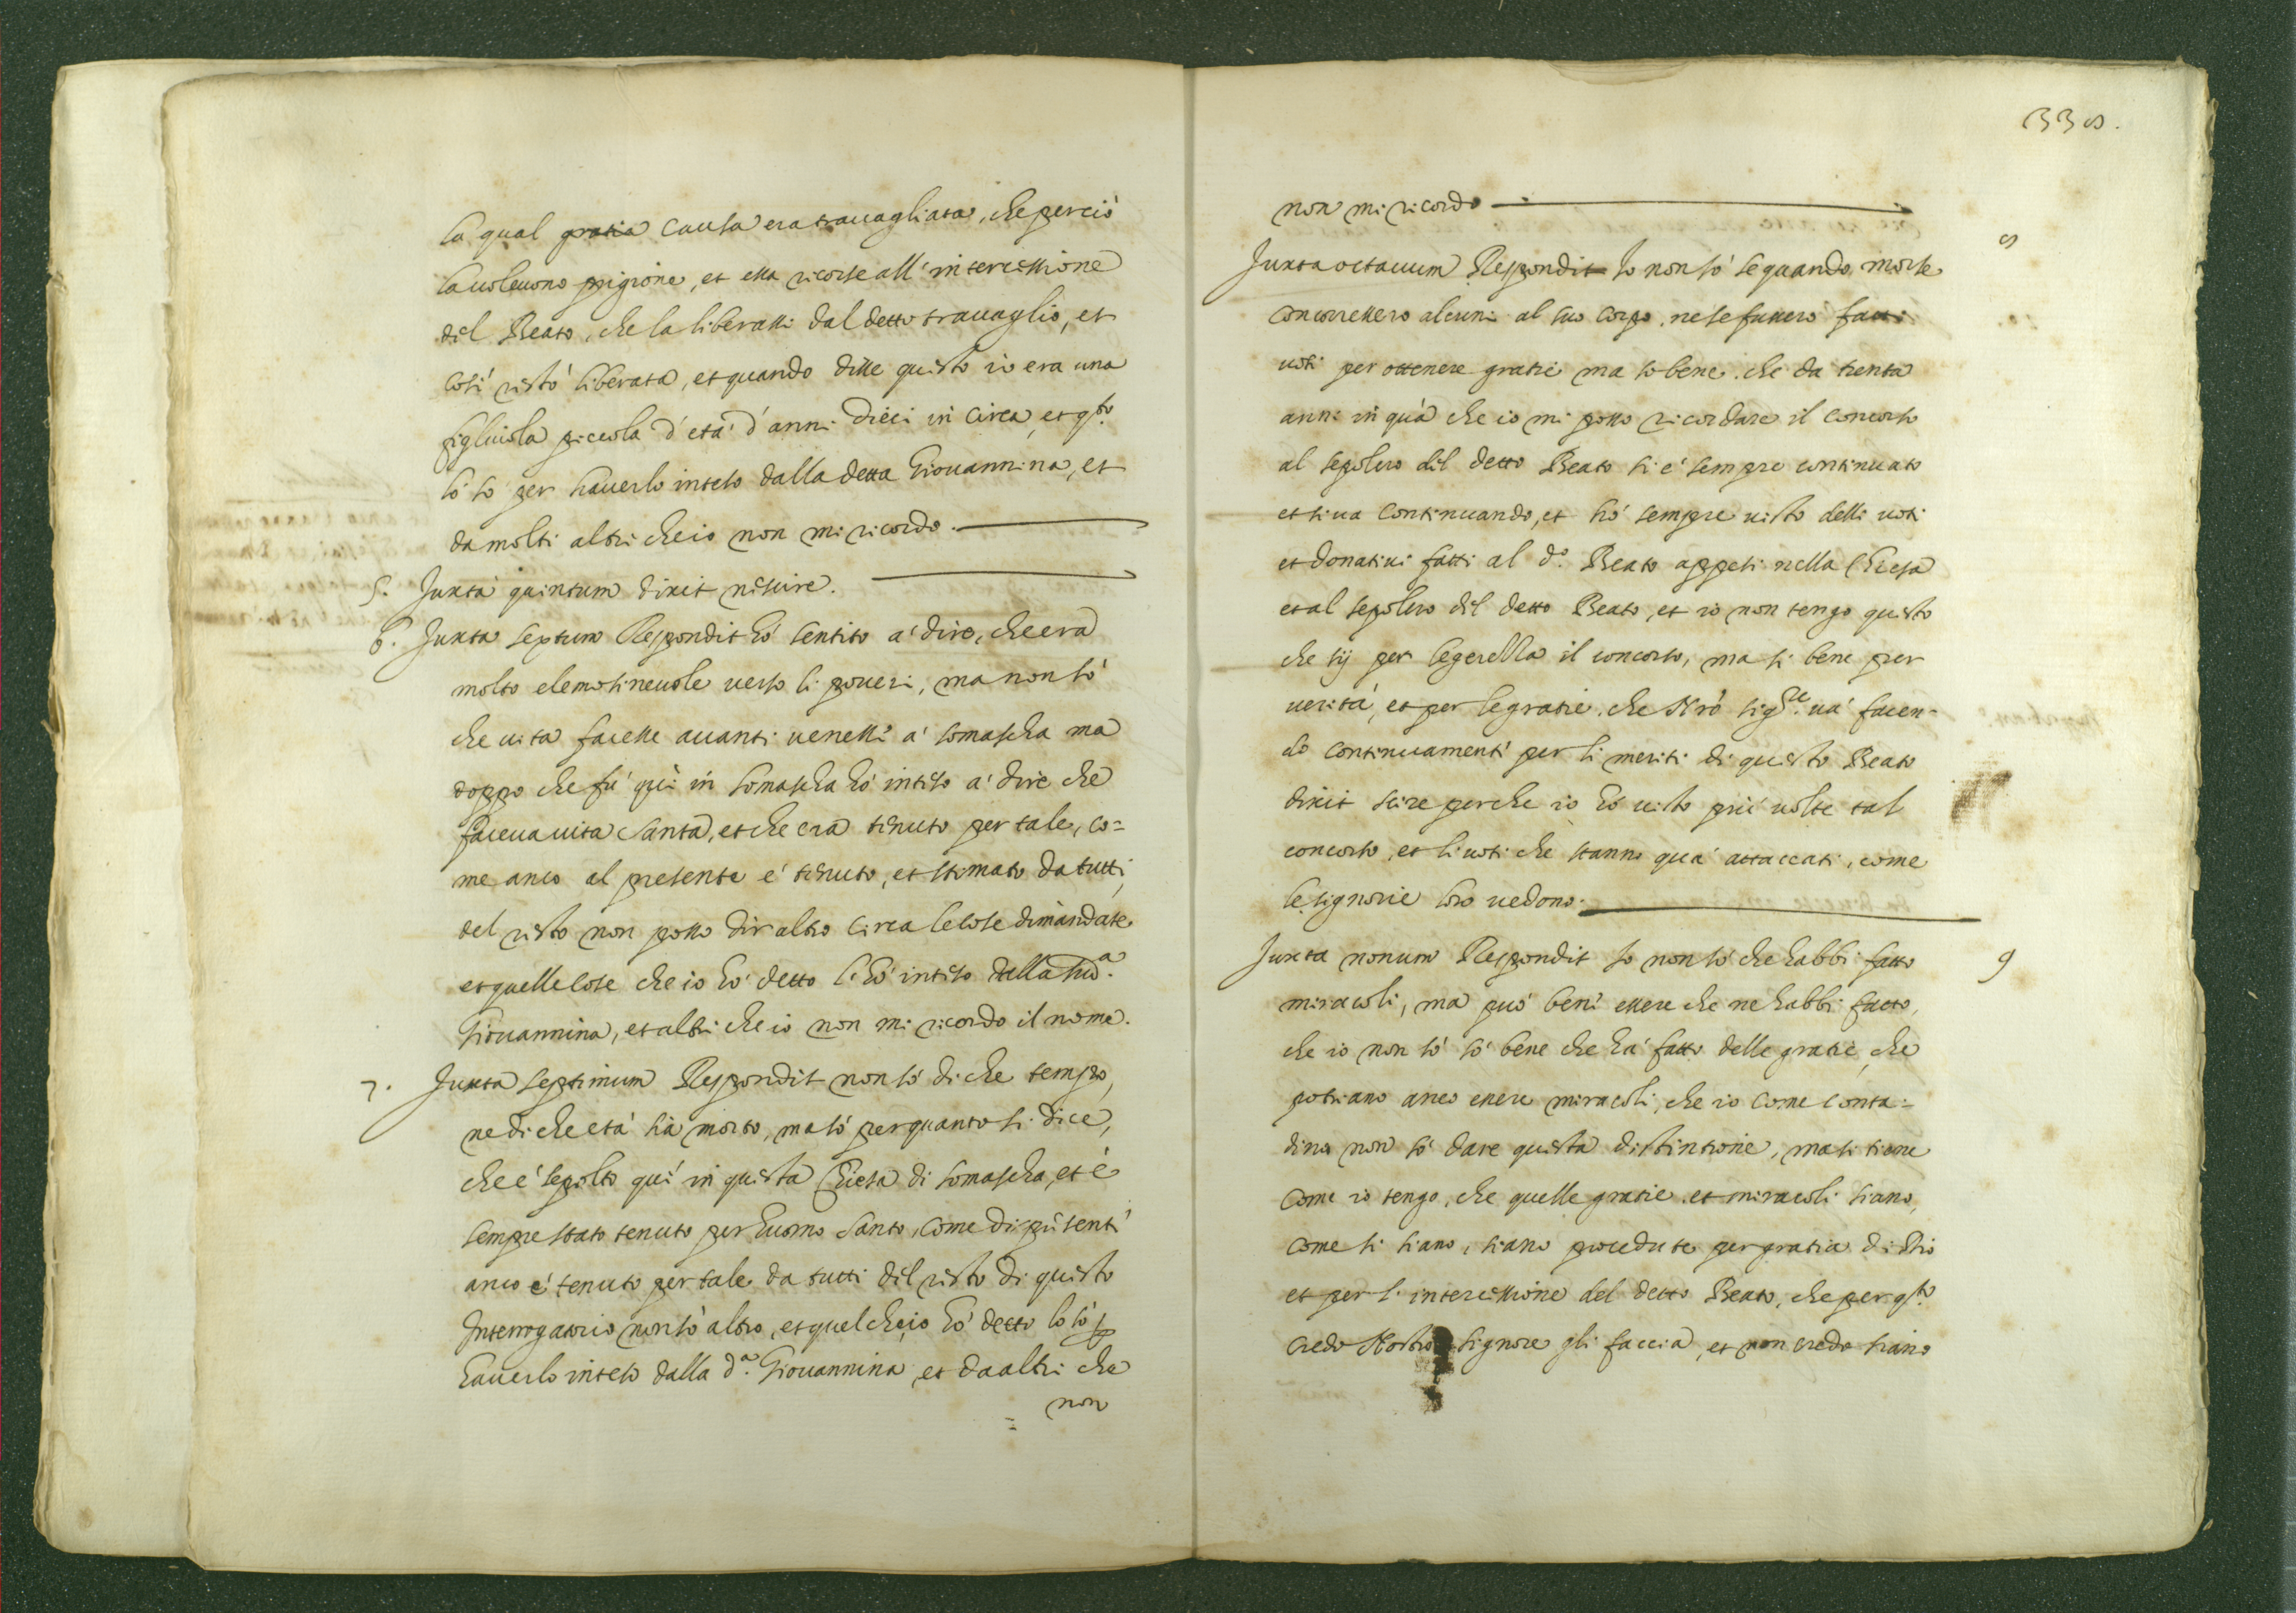 la qual gratia causa era trauagliata, che perciò
la uoleuono prigione, et essa ricorse all'intercessione
del Beato, che la liberassi dal detto trauaglio, et
così restò liberata, et quando disse questo io era una
figliuola piccola d'età d'anni dieci in circa, et q.sto
lo sò per hauerlo inteso dalla detta Giouannina, et
da molti altri che io non mi ricordo.
5. Juxta quintum dixit nescire.
6. Juxta sextum Respondit hò sentito à dire, che era
molto elemosineuole uerso li poueri, ma non sò
che uita facesse auanti uenessi à Somascha ma
doppo che fù quì in Somascha hò inteso à dire che
faceua uita santa, et che era tenuto per tale, co=
me anco al presente è tenuto, et stimato da tutti,
del resto non posso dir altro circa le cose dimandate
et quelle cose che io hò detto l'hò inteso dalla sud.a
Giouannina, et altri che io non mi ricordo il nome.
7. Juxta septimum Respondit non sò di che tempo,
ne di che età sia morto, ma sò per quanto si dice,
che è sepolto quì in questa Chiesa di Somascha, et è
sempre stato tenuto per huomo santo, come di presenti
anco è tenuto per tale da tutti del resto di questo
Interrogatorio non sò altro, et quel che io hò detto lo sò p
hauerlo inteso dalla d.a Giouannina, et da altri che
non
338.
non mi ricordo
Juxta octauum Respondit Io non sò se quando morse 8
concorressero alcuni al suo corpo, ne se fussero fatti
uoti per ottenere gratie ma sò bene che da trenta
anni in quà che io mi posso ricordare il concorso
al sepolcro del detto Beato si è sempre continuato
et si ua continuando, et hò sempre uisto delli uoti
et donatiui fatti al d.o Beato appesi nella Chiesa
et al sepolcro del detto Beato, et io non tengo questo
che sij per legerezza il concorso, ma si bene per
uerità, et per le gratie che Nrõ Sig.re uà facen-
do continuamenti per li meriti di questo Beato
dixit scire perche io hò uisto più uolte tal
concorso, et li uoti che stanno quà attaccati, come
le signorie loro uedono.
Juxta nonum Respondit Io non sò che habbi fatto 9
miracoli, ma può beni essere che ne habbi fatto,
che io non sò sò bene che hà fatto delle gratie, che
potriano anco essere miracoli, che io come conta=
dina non sò dare questa distintione, ma si tiene
come io tengo, che quelle gratie et miracoli siano,
come si siano, siano procedute per gratia di Dio
et per l'intercessione del detto Beato, che per q.sto
credo Nostro Signore gli faccia, et non credo siano